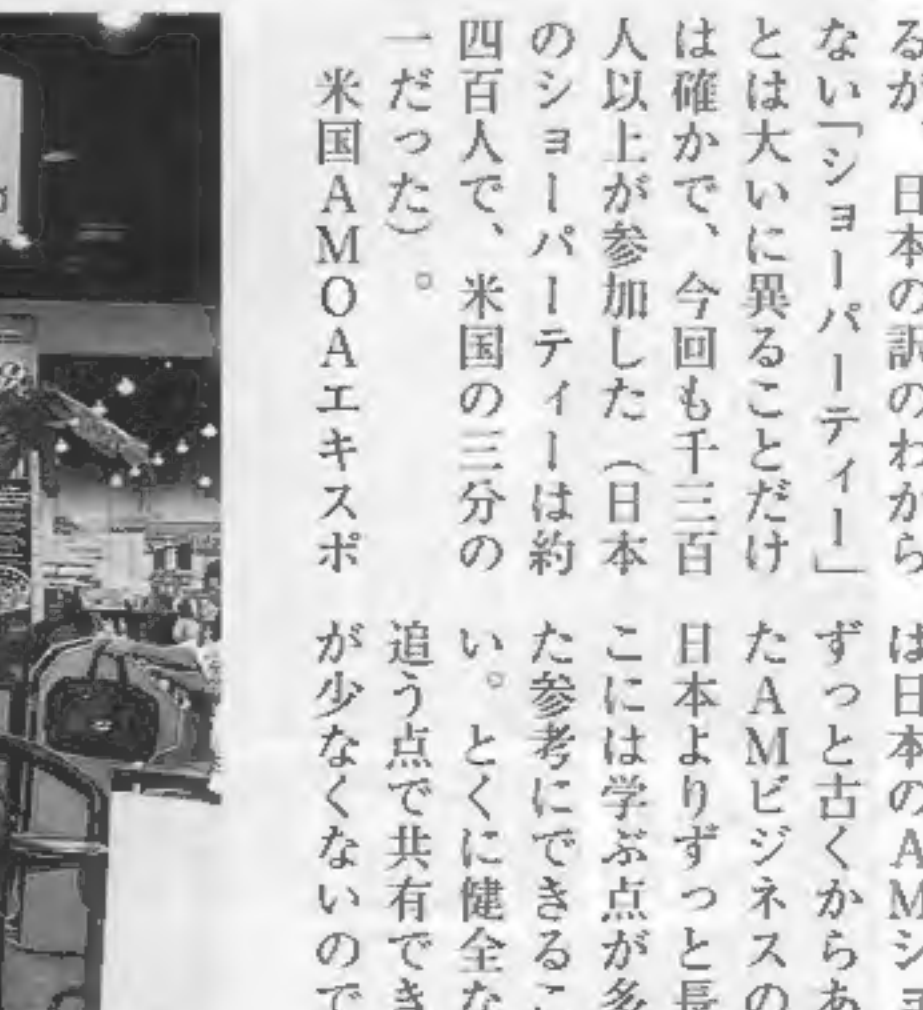 るが、日本の訳のわから
ない「ショーパーティー」
とは大いに異ることだけ
は確かで、今回も千三百
人以上が参加した（日本
のショーパーティーは約
四百人で、米国の三分の
一だった）。
米国AMOAエキスポ
は日本のAMショ
ずっと古くからあ
たAMビジネスの
日本よりずっと長
こには学ぶ点が多
た参考にできるこ
い。とくに健全な
追う点で共有でき
が少なくないので